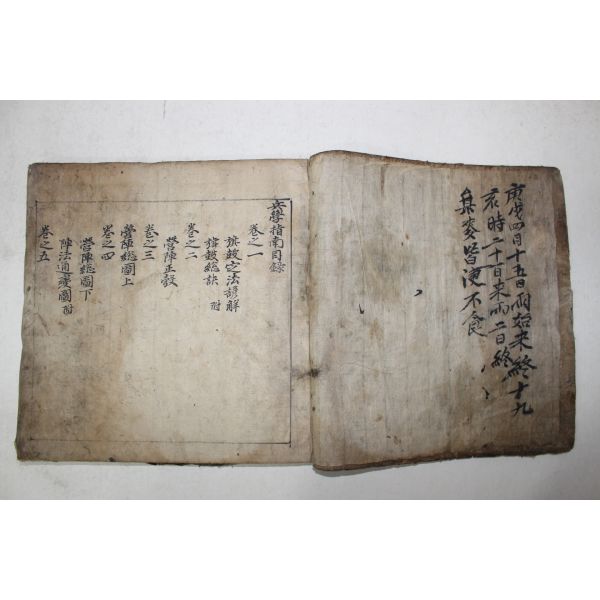 庚戌四月十五日雨始来終十九
亥時二十日来雨二日終
牟麥皆浸不食
兵學指南目錄
卷之一
旗鼓定法諺解
旗鼓総訣 附
卷之二
營陣正彀
卷之三
營陣総圖上
卷之四
營陣総圖下
陣法通變圖 附
卷之五